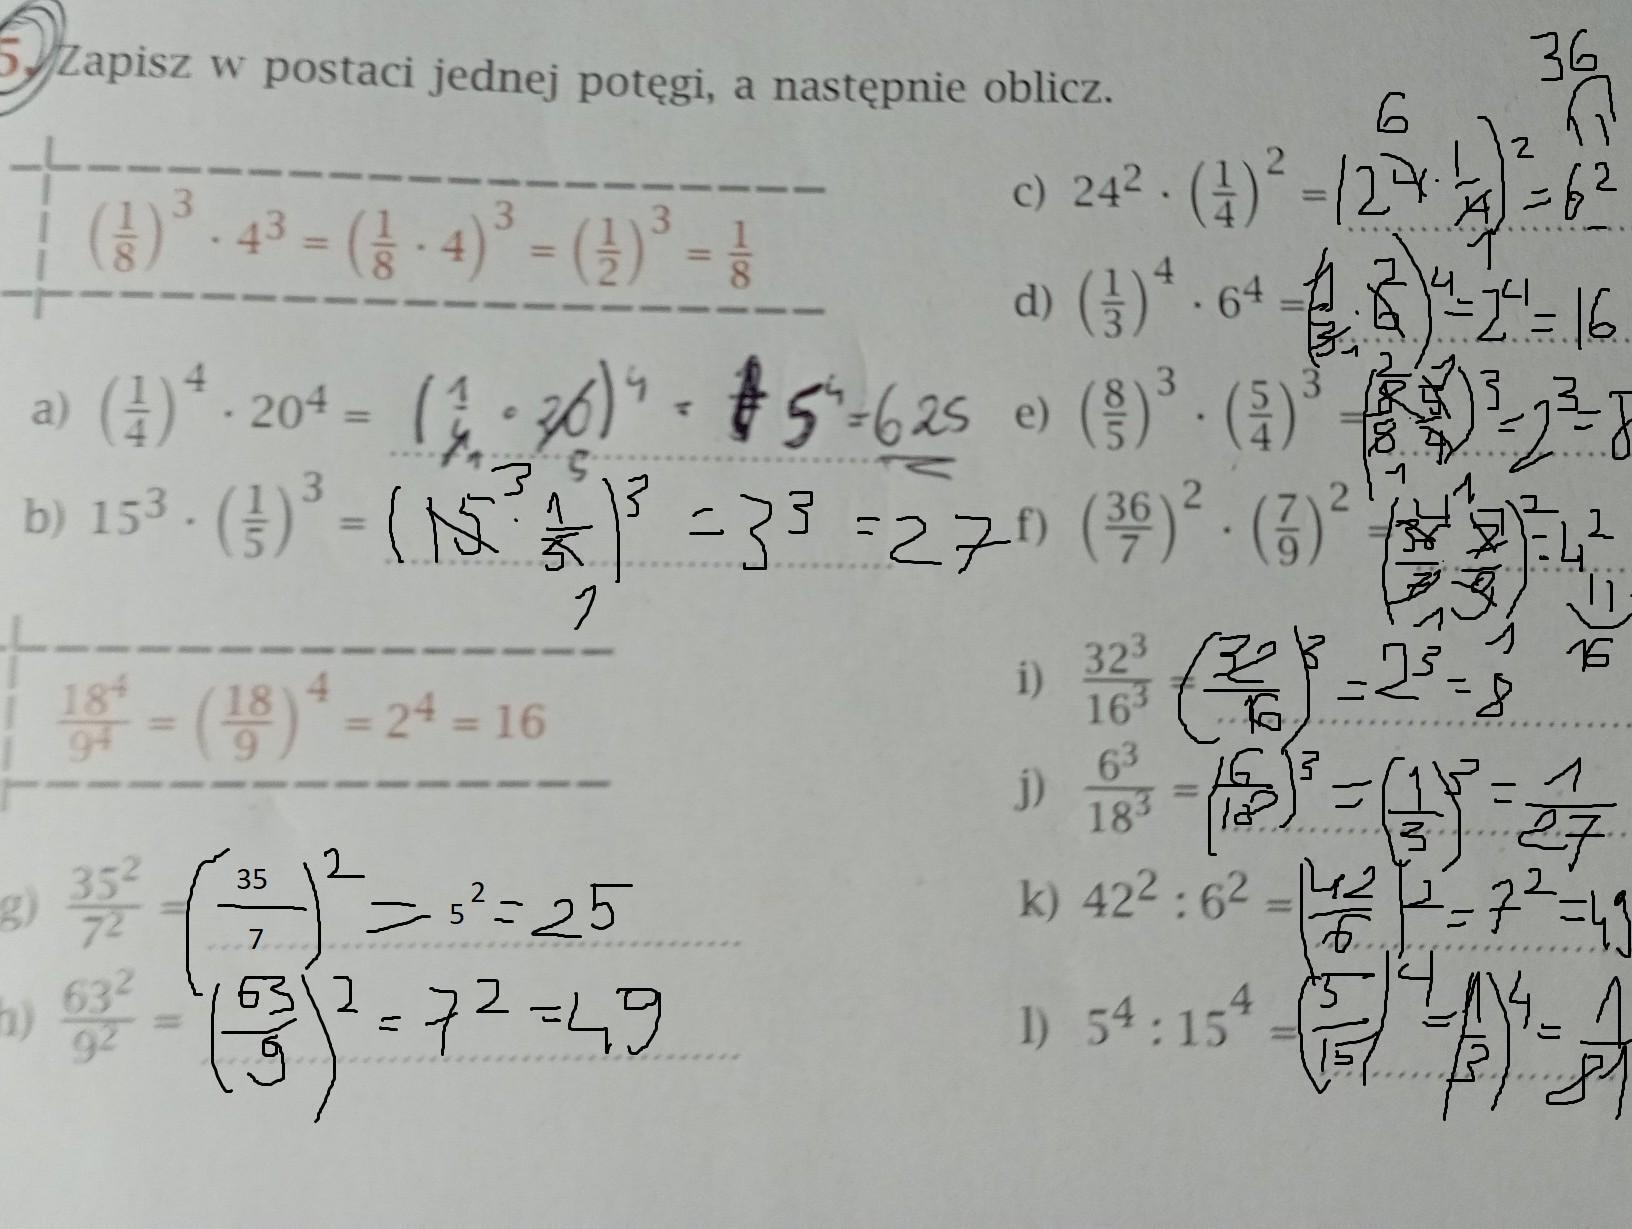 5. Zapisz w postaci jednej potęgi, a następnie oblicz.
(1/8)³ · 4³ = (1/8 · 4)³ = (1/2)³ = 1/8
a) (1/4)⁴ · 20⁴ = (1/4 · 20)⁴ = 5⁴ = 625
1 5
b) 15³ · (1/5)³ = (15 · 1/5)³ = 3³ = 27
3 1
18⁴/9⁴ = (18/9)⁴ = 2⁴ = 16
g) 35²/7² = (35/7)² = 5² = 25
h) 63²/9² = (63/9)² = 7² = 49
c) 24² · (1/4)² = (24 · 1/4)² = 6²
6 1 36
d) (1/3)⁴ · 6⁴ = (1/3 · 6)⁴ = 2⁴ = 16
1 2
e) (8/5)³ · (5/4)³ = (8/5 · 5/4)³ = 2³ = 8
2 1 1
f) (36/7)² · (7/9)² = (36/7 · 7/9)² = 4²
4 1 1 1 16
i) 32³/16³ = (32/16)³ = 2³ = 8
j) 6³/18³ = (6/18)³ = (1/3)³ = 1/27
k) 42² : 6² = (42/6)² = 7² = 49
l) 5⁴ : 15⁴ = (5/15)⁴ = (1/3)⁴ = 1/81